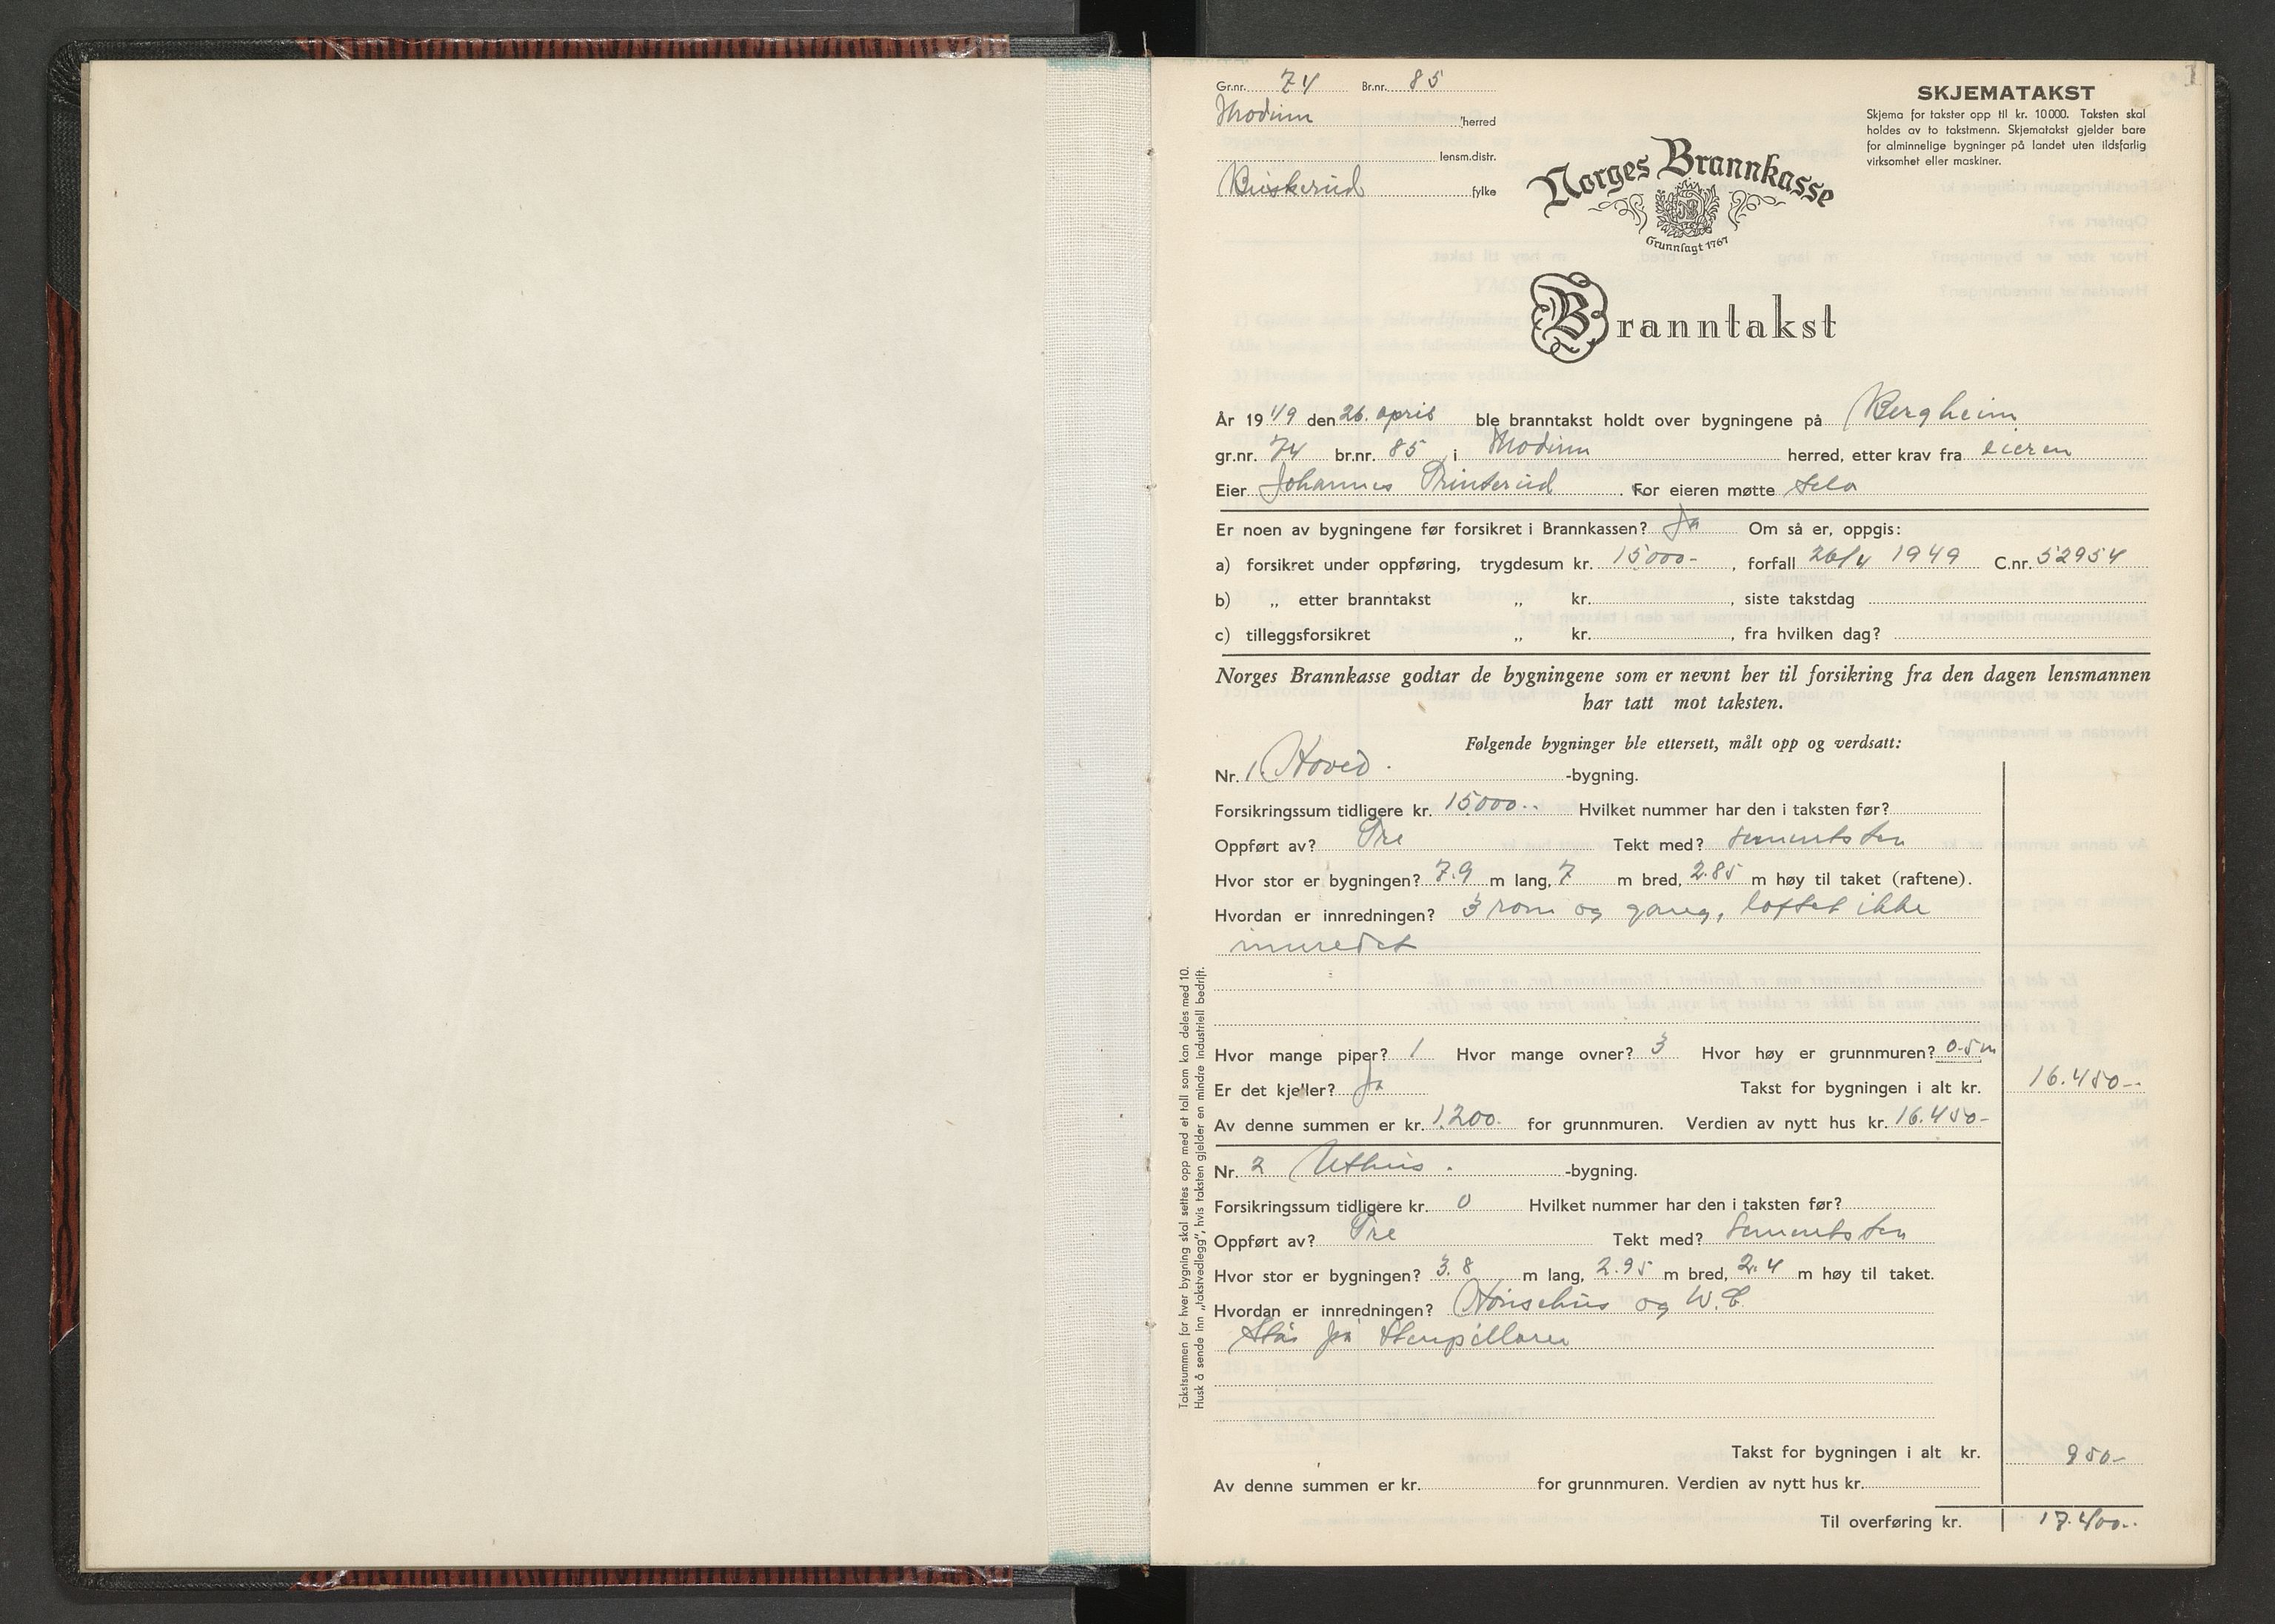 1
Gr.nr. 74 Br.nr. 85
Modum herred
lensm.distr.
Buskerud fylke
SKJEMATAKST
Skjema for takster opp til kr. 10000. Taksten skal
holdes av to takstmenn. Skjematakst gjelder bare
for alminnelige bygninger på landet uten ildsfarlig
virksomhet eller maskiner.
Norges Brannkasse
Grunnlagt 1767
Branntakst
År 1949 den 26. april ble branntakst holdt over bygningene på Bergheim
gr.nr. 74 br.nr. 85 i Modum herred, etter krav fra eieren
Eier Johannes Printerud. For eieren møtte selv
Er noen av bygningene før forsikret i Brannkassen? Ja Om så er, oppgis:
a) forsikret under oppføring, trygdesum kr. 15000-, forfall 26/4 1949 C.nr. 52954
b) „ etter branntakst „ kr. , siste takstdag
c) tilleggsforsikret „ kr. , fra hvilken dag?
Norges Brannkasse godtar de bygningene som er nevnt her til forsikring fra den dagen lensmannen
har tatt mot taksten.
Følgende bygninger ble ettersett, målt opp og verdsatt:
Nr. 1. Hoved.-bygning.
Forsikringssum tidligere kr. 15000.- Hvilket nummer har den i taksten før?
Oppført av? Tre Tekt med? Sementsten
Hvor stor er bygningen? 7.9 m lang, 7 m bred, 2.85 m høy til taket (raftene).
Hvordan er innredningen? 3 rom og gang, loftet ikke
innredet
Hvor mange piper? 1 Hvor mange ovner? 3 Hvor høy er grunnmuren? 0.5 m
Er det kjeller? Ja Takst for bygningen i alt kr. 16.450--
Av denne summen er kr. 1.200. for grunnmuren. Verdien av nytt hus kr. 16.450-
Nr. 2 Uthus.-bygning.
Forsikringssum tidligere kr. 0 Hvilket nummer har den i taksten før?
Oppført av? Tre Tekt med? Sementsten
Hvor stor er bygningen? 3.8 m lang, 2.95 m bred, 2.4 m høy til taket.
Hvordan er innredningen? Hönsehus og W.C.
Står på Stenpillarer
Takst for bygningen i alt kr. 950-
Av denne summen er kr. for grunnmuren. Verdien av nytt hus kr.
Til overføring kr. 17.400..
Takstsummen for hver bygning skal settes opp med et tall som kan deles med 10.
Husk å sende inn „takstvedlegg", hvis taksten gjelder en mindre industriell bedrift.